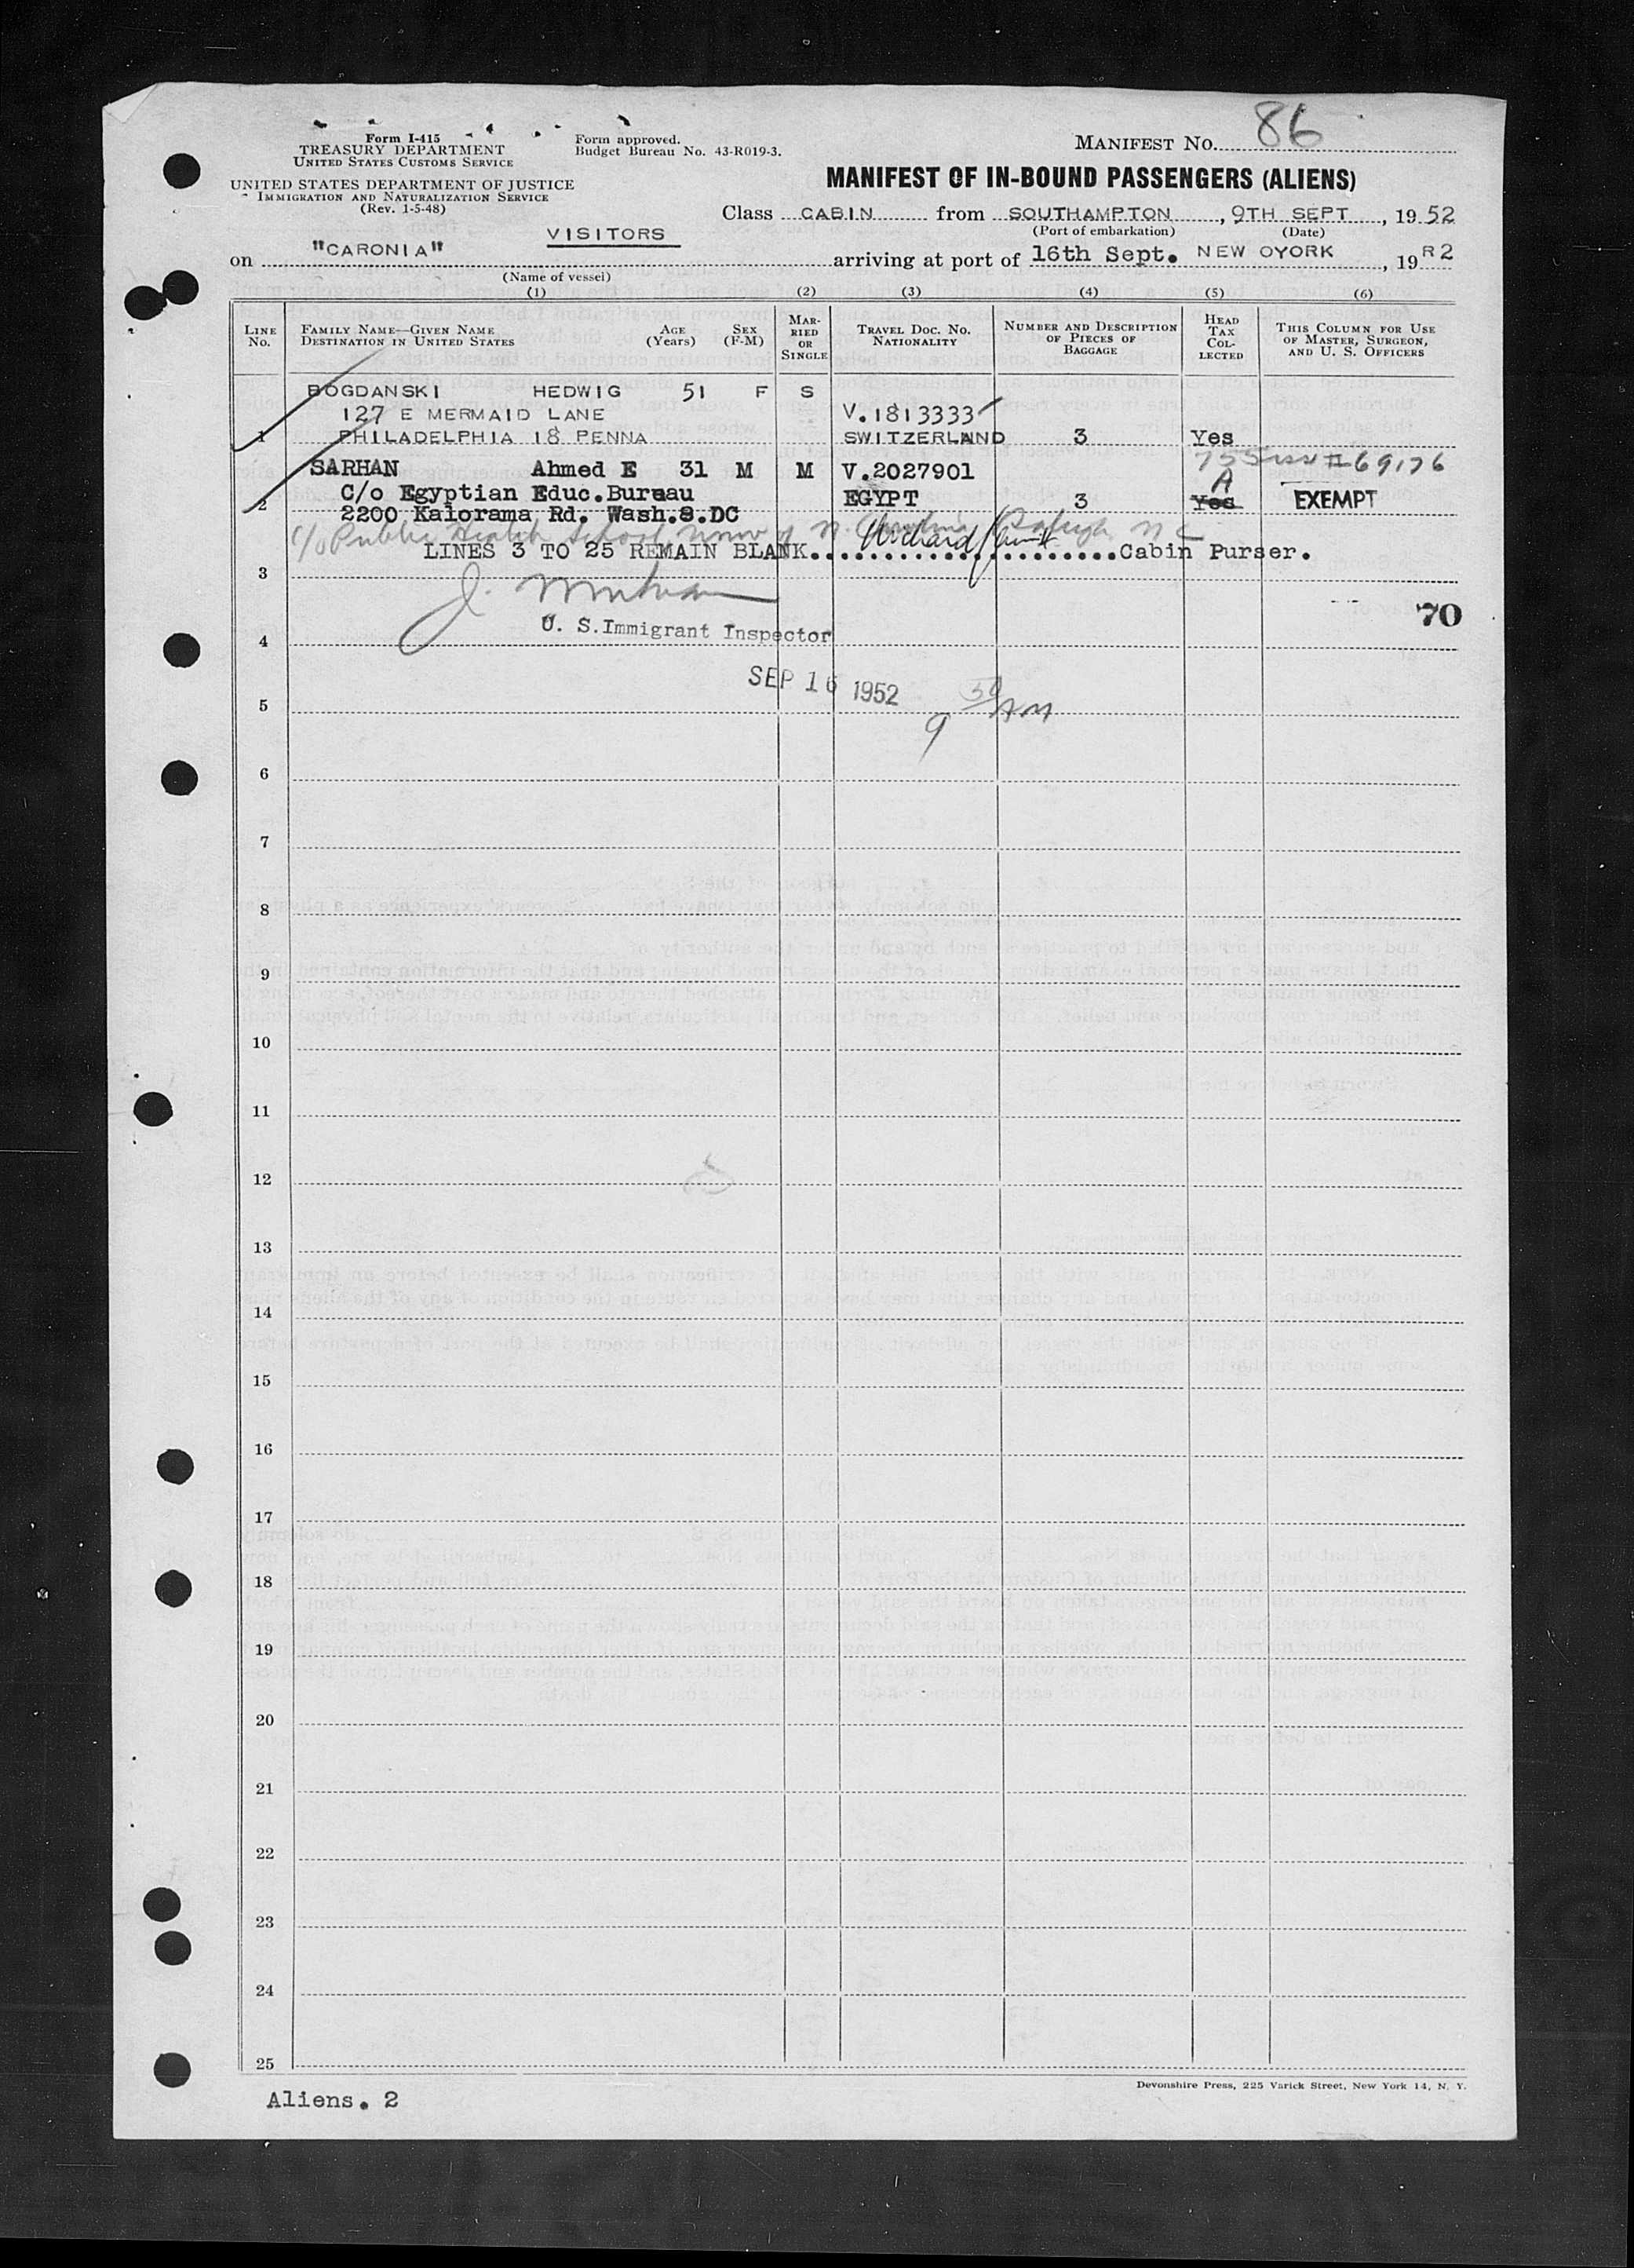 Form I-415
TREASURY DEPARTMENT
UNITED STATES CUSTOMS SERVICE
Form approved.
Budget Bureau No. 43-R019-3.
MANIFEST No. 86
UNITED STATES DEPARTMENT OF JUSTICE
IMMIGRATION AND NATURALIZATION SERVICE
(Rev. 1-5-48)
MANIFEST OF IN-BOUND PASSENGERS (ALIENS)
Class CABIN from SOUTHAMPTON, 9TH SEPT, 19 52
(Port of embarkation) (Date)
VISITORS
on "CARONIA" arriving at port of 16th Sept. NEW OYORK, 19 R2
(Name of vessel)
(1) (2) (3) (4) (5) (6)
LINE No. FAMILY NAME—GIVEN NAME DESTINATION IN UNITED STATES AGE (Years) SEX (F-M) MARRIED OR SINGLE TRAVEL DOC. NO. NATIONALITY NUMBER AND DESCRIPTION OF PIECES OF BAGGAGE HEAD TAX COLLECTED THIS COLUMN FOR USE OF MASTER, SURGEON, AND U. S. OFFICERS
BOGDANSKI HEDWIG 51 F S
127 E MERMAID LANE V.1813333
1 PHILADELPHIA 18 PENNA SWITZERLAND 3 Yes
SARHAN Ahmed E 31 M M V.2027901
A
2 C/o Egyptian Educ.Bureau EGYPT 3 Yes EXEMPT
2200 Kalorama Rd. Wash.8.DC
c/o Public Health School Univ of N. Carolina Raleigh N C
LINES 3 TO 25 REMAIN BLANK. Cabin Purser.
3
70
U. S.Immigrant Inspector
4
SEP 16 1952
9 30 AM
5
6
7
8
9
10
11
12
13
14
15
16
17
18
19
20
21
22
23
24
25
Aliens. 2
Devonshire Press, 225 Varick Street, New York 14, N. Y.